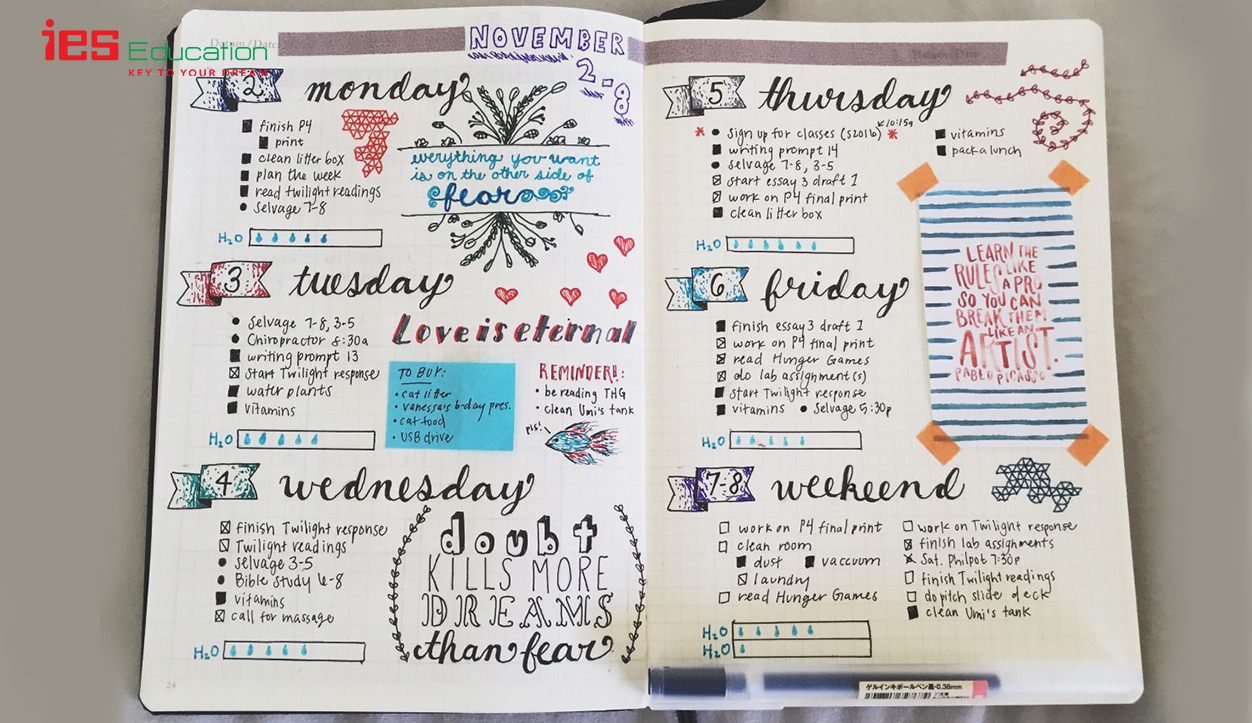 ies Education
KEY TO YOUR DREAM
Datum/Date
NOVEMBER
2-8
2 monday
finish P4
print
clean litter box
plan the week
read twilight readings
Selvage 7-8
H2O
everything you want
is on the other side of
fear
3 tuesday
Selvage 7-8, 3-5
Chiropractor 8:30a
writing prompt 13
Start Twilight response
water plants
vitamins
H2O
Love is eternal
TO BUY:
cat litter
vanessa's b-day pres.
cat food
USB drive
REMINDER!:
be reading THG
clean Umi's tank
pls!
4 wednesday
finish Twilight response
Twilight readings
Selvage 3-5
Bible Study 6-8
vitamins
call for massage
H2O
doubt
KILLS MORE
DREAMS
than fear
24
5 thursday
sign up for classes (S2016)
writing prompt 14
Selvage 7-8, 3-5
start essay 3 draft 1
work on P4 final print
clean litter box
vitamins
pack a lunch
H2O
LEARN THE
RULES LIKE
A PRO
SO YOU CAN
BREAK THEM
LIKE AN
ARTIST.
PABLO PICASSO
6 friday
finish essay 3 draft 1
work on P4 final print
read Hunger Games
do lab assignment(s)
start Twilight response
vitamins
Selvage 5:30p
H2O
7-8 weekeend
work on P4 final print
clean room
dust
vaccuum
laundry
read Hunger Games
work on Twilight response
finish lab assignments
Sat. Philpot 7:30p
finish Twilight readings
do pitch slide deck
clean Umi's tank
H2O
H2O
ゲルインキボールペン黒・0.38mm